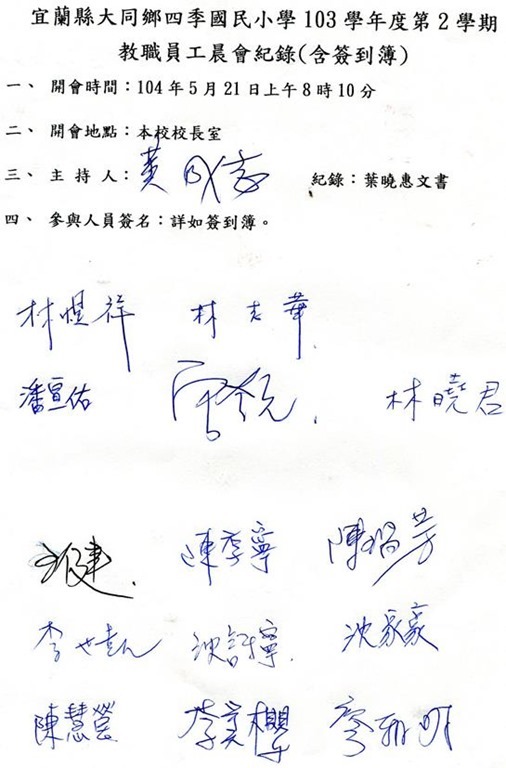 宜蘭縣大同鄉四季國民小學103學年度第2學期
教職員工晨會紀錄(含簽到簿)
一、 開會時間：104年5月21日上午8時10分
二、 開會地點：本校校長室
三、 主 持 人： 紀錄：葉曉惠文書
四、 參與人員簽名：詳如簽到簿。
林煜祥 林志華
潘宣佑 林曉君
陳季寧 陳 芳
沈家豪
陳慧瑩 廖 明